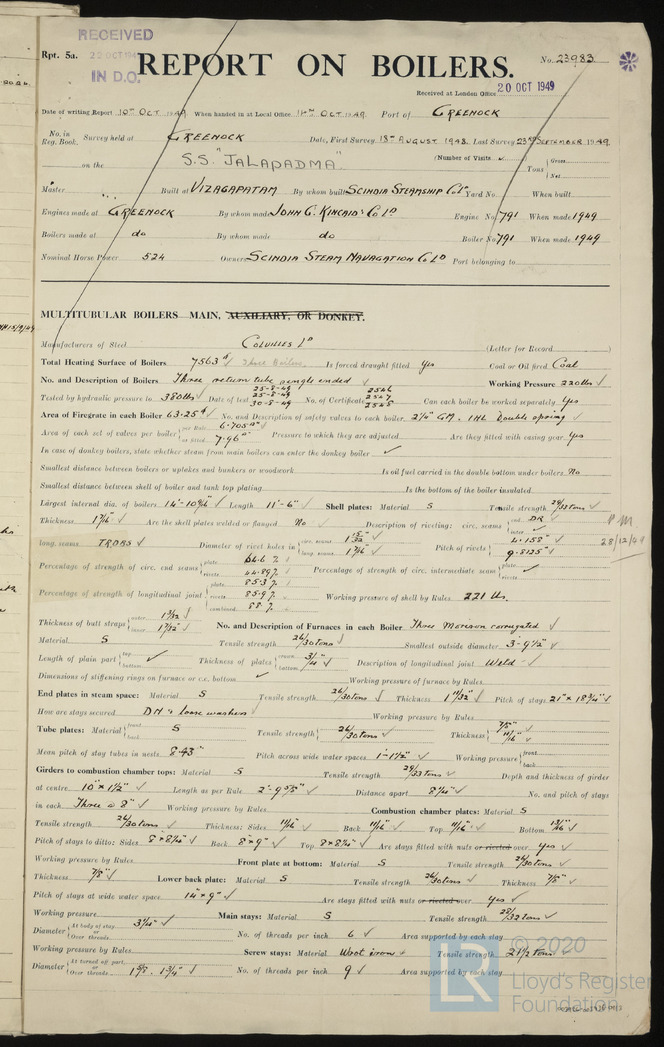 RECEIVED
Rpt. 5a.
22 OCT 194
IN D.O.
REPORT ON BOILERS.
No. 23983
Received at London Office 20 OCT 1949
Date of writing Report 10th OCT 1949 When handed in at Local Office OCT 1949 Port of GREENOCK
No. in Reg. Book. Survey held at GREENOCK Date, First Survey 18th AUGUST 1948 Last Survey 23rd SEPTEMBER 1949
on the S.S. "JALAPADMA" (Number of Visits ) Tons { Gross Net
Master Built at VIZAGAPATAM By whom built SCINDIA STEAMSHIP Co Ld Yard No. When built
Engines made at GREENOCK By whom made JOHN G. KINCAID & Co Ld Engine No. 791 When made 1949
Boilers made at do By whom made do Boiler No. 791 When made 1949
Nominal Horse Power 524 Owners SCINDIA STEAM NAVAGATION Co Ld Port belonging to
MULTITUBULAR BOILERS MAIN, AUXILIARY, OR DONKEY.
Manufacturers of Steel COLVILLES Ld (Letter for Record )
Total Heating Surface of Boilers 7563 Three Boilers Is forced draught fitted Yes Coal or Oil fired Coal
No. and Description of Boilers Three return tube single ended Working Pressure 220 lbs
Tested by hydraulic pressure to 380 lbs Date of test 25-8-49 25-8-49 30-8-49 No. of Certificate 2546 2547 2548 Can each boiler be worked separately Yes
Area of Firegrate in each Boiler 63.25 No. and Description of safety valves to each boiler 2¼" GM. IHL Double spring
Area of each set of valves per boiler { per Rule 6.705 as fitted 7.96 Pressure to which they are adjusted Are they fitted with easing gear Yes
In case of donkey boilers, state whether steam from main boilers can enter the donkey boiler
Smallest distance between boilers or uptakes and bunkers or woodwork Is oil fuel carried in the double bottom under boilers No
Smallest distance between shell of boiler and tank top plating Is the bottom of the boiler insulated
Largest internal dia. of boilers 14'-10 9/16" Length 11'-6" Shell plates: Material S Tensile strength 29/33 tons
Thickness 1 7/16 Are the shell plates welded or flanged No Description of riveting: circ. seams { end DR inter.
long. seams TRDBS Diameter of rivet holes in { circ. seams 1 15/32 long. seams 1 7/16 Pitch of rivets { 4.158" 9.8125"
P.M. 28/12/49
Percentage of strength of circ. end seams { plate 64.6 % rivets 44.89 % Percentage of strength of circ. intermediate seam { plate rivets
Percentage of strength of longitudinal joint { plate 85.3 % rivets 85.9 % combined 88.7 % Working pressure of shell by Rules 221 lbs.
Thickness of butt straps { outer 1 3/32 inner 1 7/32" No. and Description of Furnaces in each Boiler Three Morison corrugated
Material S Tensile strength 26/30 tons Smallest outside diameter 3'-9½"
Length of plain part { top bottom Thickness of plates { crown bottom 3/4" Description of longitudinal joint Weld
Dimensions of stiffening rings on furnace or c.c. bottom Working pressure of furnace by Rules
End plates in steam space: Material S Tensile strength 26/30 tons Thickness 1 11/32" Pitch of stays 21" x 18¾"
How are stays secured DN & loose washers Working pressure by Rules
Tube plates: Material { front back S Tensile strength { 26/30 tons Thickness { 7/8" 11/16"
Mean pitch of stay tubes in nests 8.43" Pitch across wide water spaces 1'-1½" Working pressure { front back
Girders to combustion chamber tops: Material S Tensile strength 29/33 tons Depth and thickness of girder
at centre 10" x 1½" Length as per Rule 2'-9 Distance apart 8¼" No. and pitch of stays
in each Three @ 8" Working pressure by Rules Combustion chamber plates: Material S
Tensile strength 26/30 tons Thickness: Sides 11/16 Back 11/16" Top 11/16" Bottom 13/16
Pitch of stays to ditto: Sides 8" x 8¼" Back 8" x 9" Top 8" x 8¼" Are stays fitted with nuts or riveted over Yes
Working pressure by Rules Front plate at bottom: Material S Tensile strength 26/30 tons
Thickness 7/8" Lower back plate: Material S Tensile strength 26/30 tons Thickness 7/8"
Pitch of stays at wide water space 14" x 9" Are stays fitted with nuts or riveted over Yes
Working pressure Main stays: Material S Tensile strength 28/32 tons
Diameter { At body of stay or Over threads 3¼" No. of threads per inch 6 Area supported by each stay
Working pressure by Rules Screw stays: Material Wrot iron Tensile strength 21½ tons
Diameter { At turned off part, or Over threads 1¾" No. of threads per inch 9 Area supported by each stay
LR © 2020
Lloyd's Register
Foundation